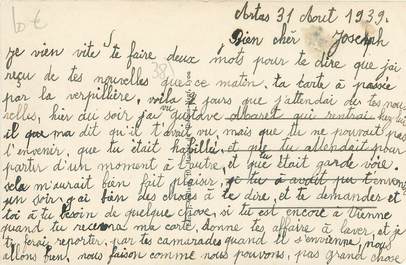 10 €
Artas 31 Aout 1939.
Bien chèr Joseph
Je vien vite te faire deux mots pour te dire que j'ai
reçu de tes nouvelles que ce matin, ta carte à passée
par la verpillière, voila jours que j'attendai des tes nou
velles, hier du soir j'ai gustave qui rentrai
il que ma dit qu'il t'avait vu, mais que tu ne pouvait pas
l'envenir, que tu était habillé, et que tu attendait pour
partir d'un moment à l'autre, et que tu était garde voie.
sela m'aurait bien fait plaisir, je tu à avait pu t'
un soir, j'ai bien des choses à te dire, et te demander, et
toi à tu besoin de quelque chose, si tu est encore à vienne
quand tu recevra ma carte, donne tes affaire à laver, et je
te ferai reporter, par tes camarades quand il s'envienne, nous
allons bien, nous faison comme nous pouvons, pas grand chose